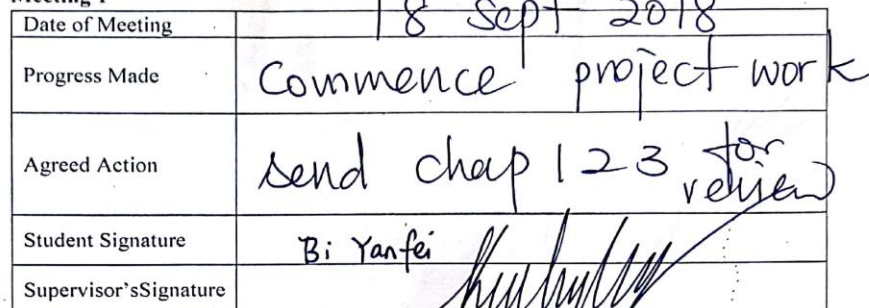 Date of Meeting 18 Sept 2018
Progress Made Commence project work
Agreed Action send chap 1 2 3 for
review
Student Signature Bi Yanfei
Supervisor'sSignature